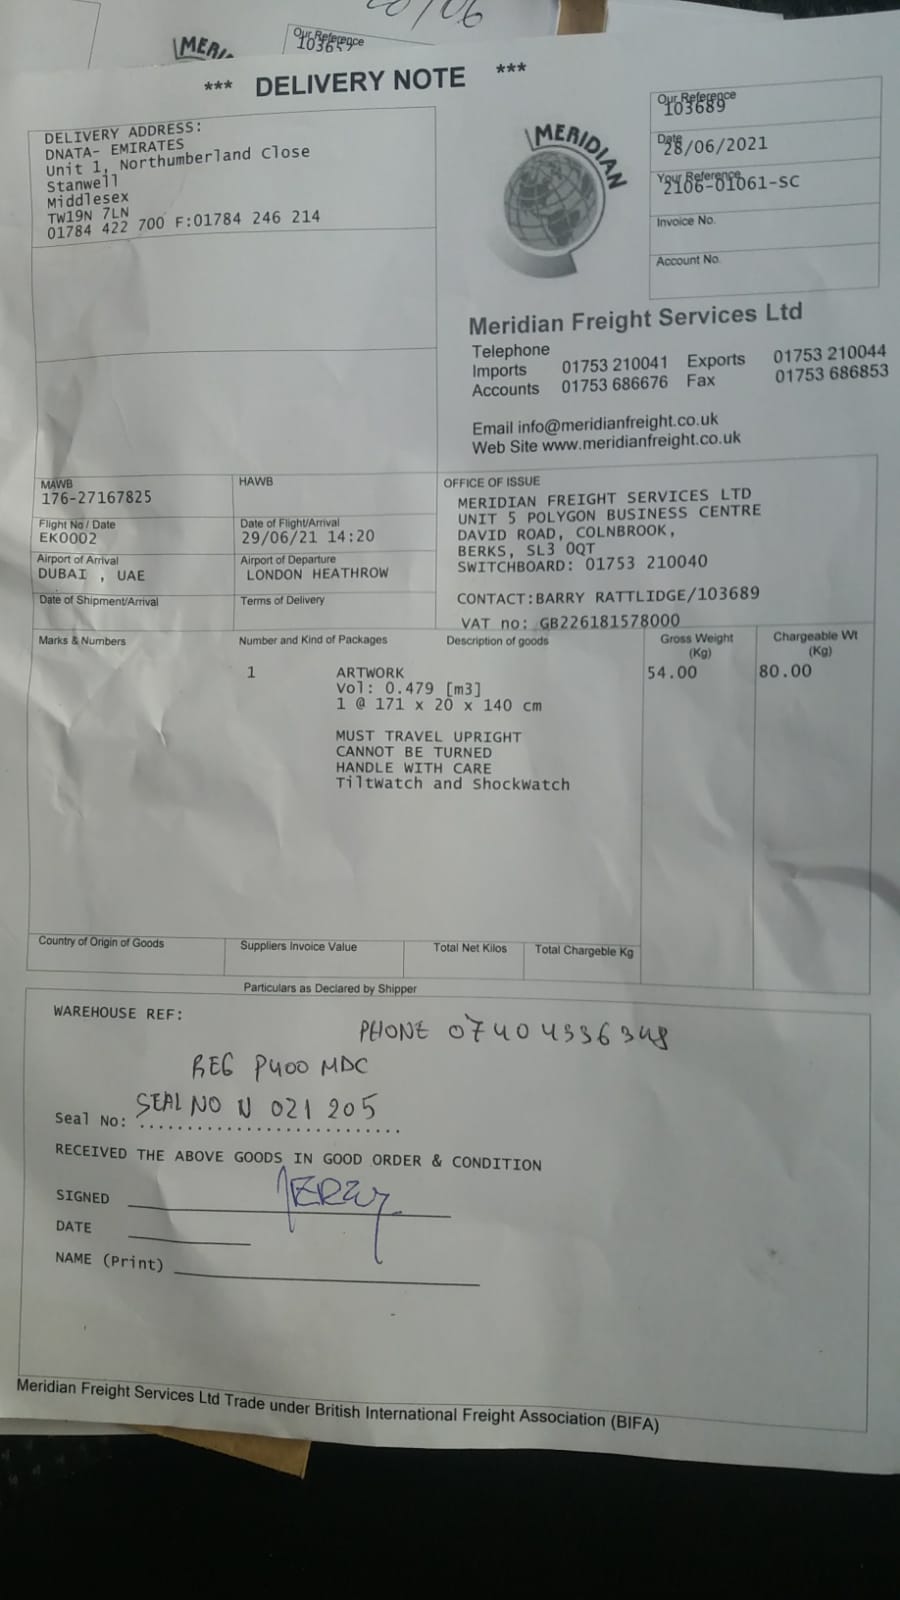 20/06
MERI
Our Reference
*** DELIVERY NOTE ***
DELIVERY ADDRESS:
DNATA- EMIRATES
Unit 1, Northumberland Close
Stanwell
Middlesex
TW19N 7LN
01784 422 700 F:01784 246 214
MERIDIAN
Our Reference
103689
Date
28/06/2021
Your Reference
2106-01061-SC
Invoice No.
Account No.
Meridian Freight Services Ltd
Telephone
Imports 01753 210041 Exports 01753 210044
Accounts 01753 686676 Fax 01753 686853
Email info@meridianfreight.co.uk
Web Site www.meridianfreight.co.uk
MAWB
176-27167825
HAWB
Flight No / Date
EK0002
Date of Flight/Arrival
29/06/21 14:20
Airport of Arrival
DUBAI , UAE
Airport of Departure
LONDON HEATHROW
Date of Shipment/Arrival
Terms of Delivery
OFFICE OF ISSUE
MERIDIAN FREIGHT SERVICES LTD
UNIT 5 POLYGON BUSINESS CENTRE
DAVID ROAD, COLNBROOK,
BERKS, SL3 0QT
SWITCHBOARD: 01753 210040
CONTACT:BARRY RATTLIDGE/103689
VAT no: GB226181578000
Marks & Numbers
Number and Kind of Packages
Description of goods
Gross Weight
(Kg)
Chargeable Wt
(Kg)
1 ARTWORK 54.00 80.00
Vol: 0.479 [m3]
1 @ 171 x 20 x 140 cm
MUST TRAVEL UPRIGHT
CANNOT BE TURNED
HANDLE WITH CARE
TiltWatch and ShockWatch
Country of Origin of Goods
Suppliers Invoice Value
Total Net Kilos
Total Chargeble Kg
Particulars as Declared by Shipper
WAREHOUSE REF:
PHONE 07404336348
REG P400 MDC
SEAL NO N 021 205
Seal No: ............................
RECEIVED THE ABOVE GOODS IN GOOD ORDER & CONDITION
SIGNED JERZY
DATE
NAME (Print)
Meridian Freight Services Ltd Trade under British International Freight Association (BIFA)